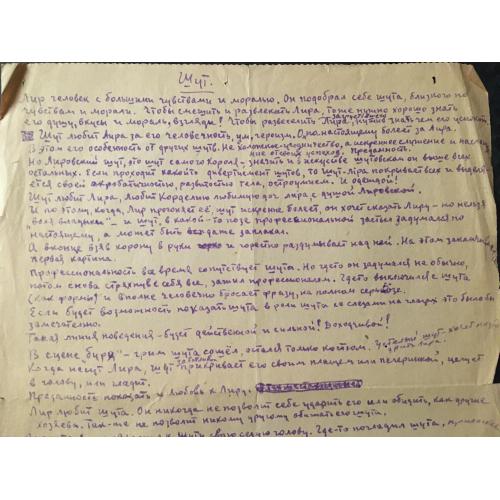 Шут.
1
Лир человек с большими чувствами и моралью. Он подобрал себе шута, близкого по
чувствам и морали. Чтобы смешить и развлекать Лира, тоже нужно хорошо знать
его душу, вкусы и мораль, взгляды! Чтобы развеселить Лира, знать чем его успокоить
Шут любит Лира за его человечность, ум, героизм. По настоящему болеет за Лира.
В этом его особенность от других шутов. Не холопское а искреннее служение и
Преданность.
Но Лировский шут, это шут самого короля - значит и в искусстве шутовском он выше всех
остальных. Если проходит какой то дивертисмент шутов, то шут Лира покрывает всех и выделя-
ется своей акробатичностью, развитостью тела, остроумием. И одеждой!
Шут любит Лира, любит Корделию любимую дочь Лира с душой Лировской.
И по этому, когда, Лир прогоняет её, шут искренне болеет, он хочет сказать Лиру - но нельзя
"воля владыки" - и шут, в какой-то позе профессиональной застыл задумался по
настоящему, а может быть даже заплакал.
А в конце взяв корону в руки горестно раздумывает над ней. На этом заканчив
первая картина.
Профессиональность всё время сопутствует шута. Но где то он задумался не обычно,
потом снова стряхнув с себя все, зажил профессионалом. Где то выключился с шута
(как формы) и вполне человечно бросает фразу, на полном серьёзе.
Если будет возможность показать шута в роли шута со слезами на глазах это было бы
замечательно.
Такая линия поведения - будет действенной и сильной! Доходчивой!
В сцене "бури" - грим шута сошёл, остался только костюм. Усталый шут
Когда несут Лира, шут прикрывает его своим плащём или пелеринкой, целует
в голову, или гладит.
Преданность показать и любовь к Лиру.
Лир любит шута. Он никогда не позволит себе ударить его или обидеть, как другие
хозяева. Так-же не позволит никому другому обижать его шута.
шут свою седую голову. Где-то погладил шута,